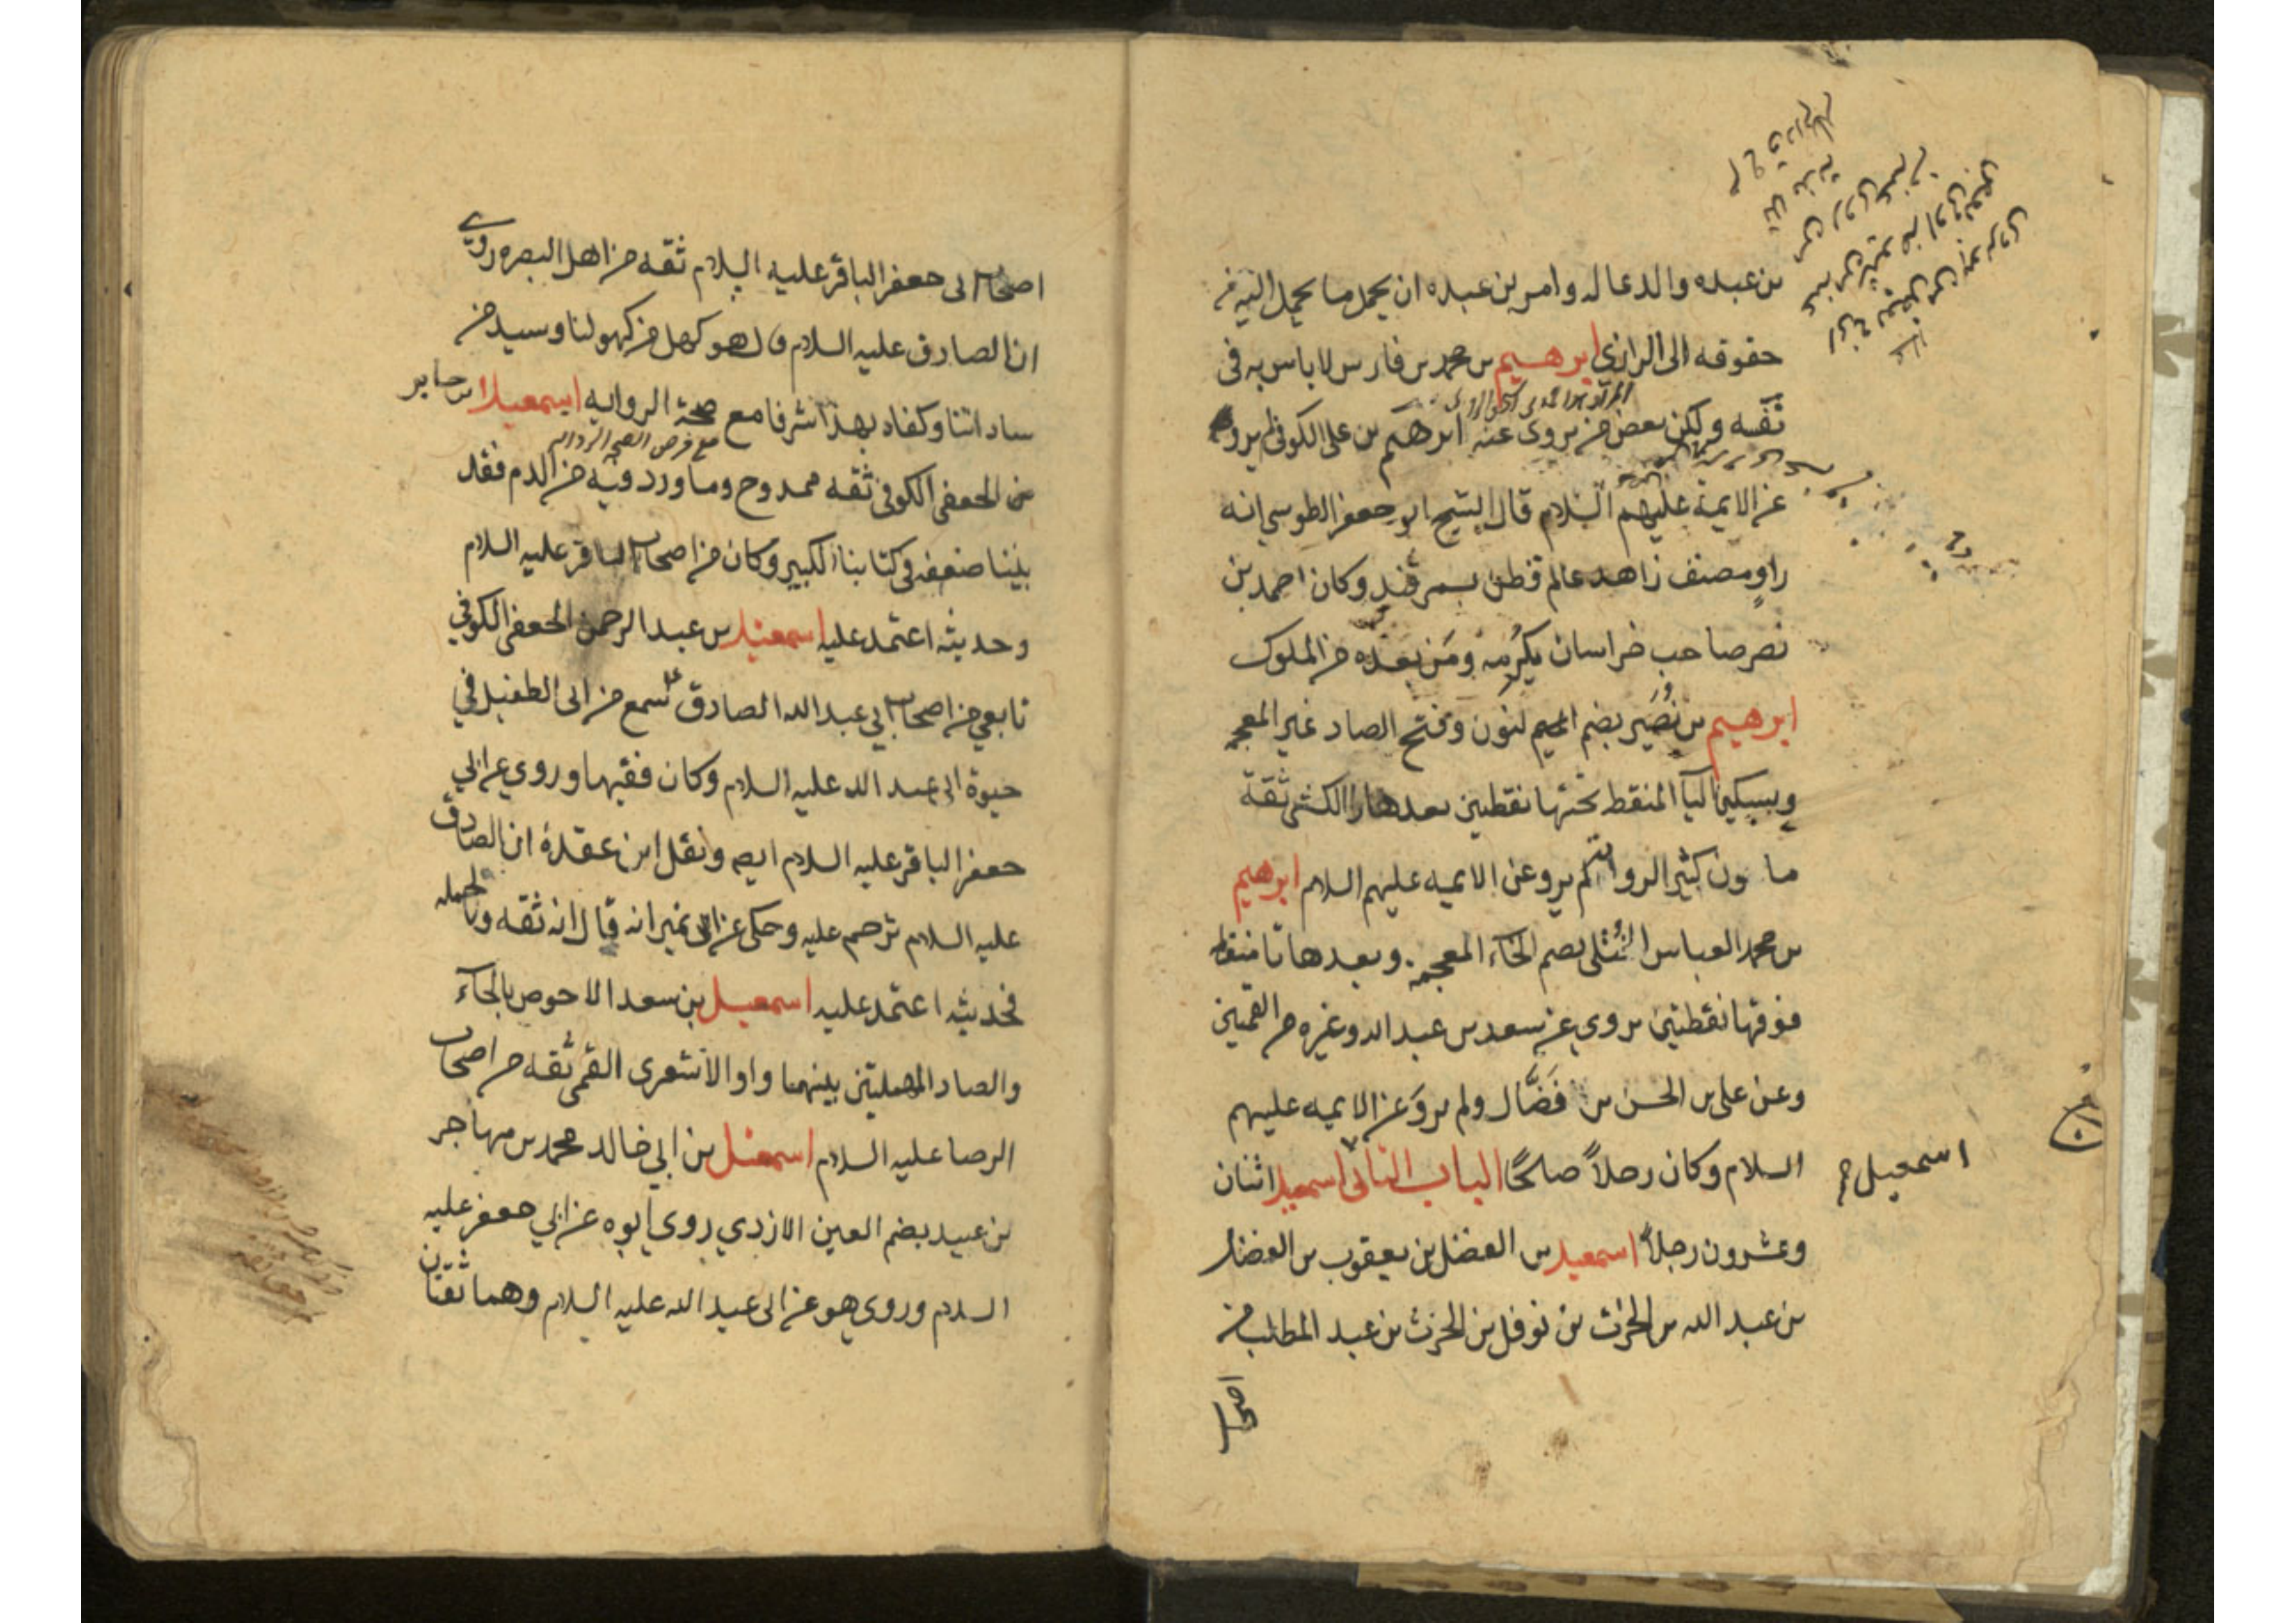 بن عبده والدعا له وامر بن عبده ان يحمل ما يحمل اليه من
حقوقه الى الرازي ابرهيم بن محمد بن فارس لا باس به في
ثقه ولكن بعض من يروى عنه ابرهيم بن على الكوفي لم يرو
عن الايمة عليهم السلام قال الشيخ ابو جعفر الطوسي انه
راو مصنف زاهد عالم قطن بسمرقند وكان احمد بن
نصر صاحب خراسان يكرمه ومن بعده من الملوك
ابرهيم بن نصير بضم النون وفتح الصاد غير المعجمه
وبسكين اليآ المنقط تحتها نقطين بعدها را الكشى ثقة
مامون كثير الروايه لم يرو عن الايمه عليهم السلام ابرهيم
بن محمد العباس الختلى بضم الخآء المعجمه وبعدها تا منقط
فوقها نقطتين يروي عن سعد بن عبد الله وغيره من القميين
وعن على بن الحسن بن فضال ولم يرو عن الايمه عليهم
السلام وكان رجلاً صالحًا الباب الثانى اسمعيل اثنان
اسمعيل
وعشرون رجلاً اسمعيل بن الفضل بن يعقوب بن الفضل
بن عبد الله بن الحرث بن نوفل بن الحرث بن عبد المطلب من
اصحاب
اصحاب ابى جعفر الباقر عليه السلام ثقه من اهل البصره روي
ان الصادق عليه السلام قال هو كهل من كهولنا وسيد من
ساداتنا وكفاه بهذا شرفا مع صحة الروايه اسمعيل بن جابر
الجعفى الكوفى ثقه ممدوح وما ورد فيه من الذم فقد
بينا ضعفه في كتابنا الكبير وكان من اصحاب الباقر عليه السلام
وحديثه اعتمد عليه اسمعيل بن عبد الرحمن الجعفى الكوفي
تابعي من اصحاب ابي عبد الله الصادق ع سمع من ابى الطفيل في
حيوة ابى عبد الله عليه السلام وكان فقيها وروي عن ابي
جعفر الباقر عليه السلام ايضا ونقل ابن عقدة ان الصادق
عليه السلام ترحم عليه وحكى عن ابن نمير انه قال انه ثقه وبالجمله
فحديثه اعتمد عليه اسمعيل بن سعد الاحوص بالحآء
والصاد المهملتين بينهما واو الاشعرى القمى ثقه من اصحاب
الرضا عليه السلام اسمعيل بن ابي خالد محمد بن مهاجر
بن عبيد بضم العين الازدي روى ابوه عن ابي جعفر عليه
السلام وروى هو عن ابى عبد الله عليه السلام وهما ثقتان